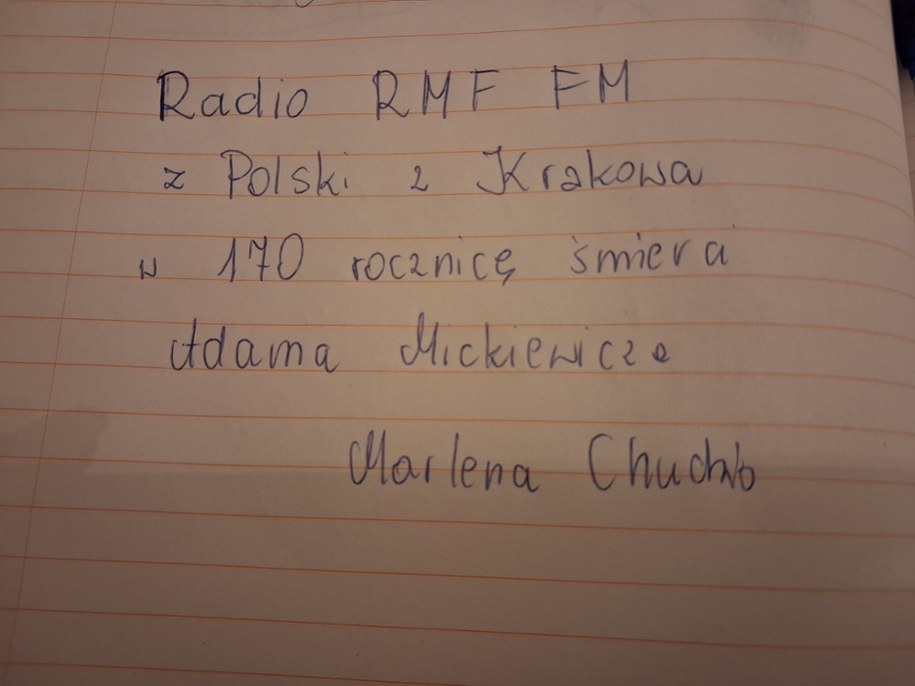 Radio RMF FM
z Polski z Krakowa
w 170 rocznicę śmierci
Adama Mickiewicza
Marlena